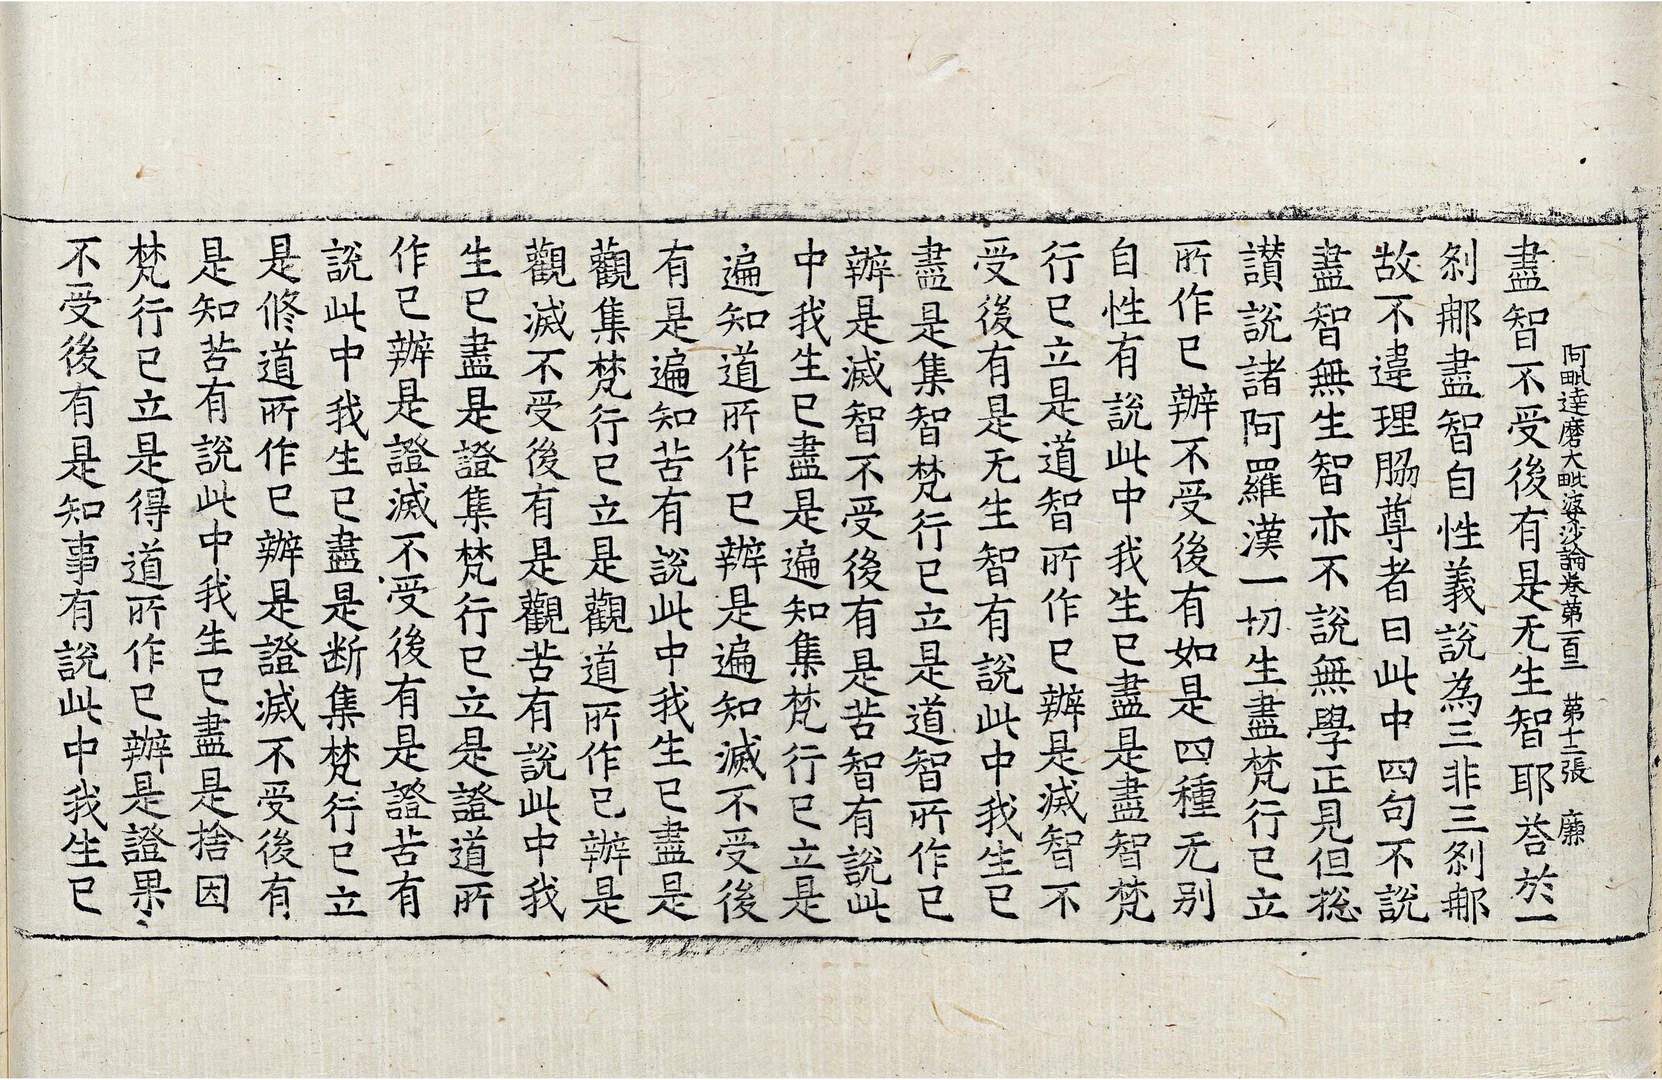 阿毗達磨大毗婆沙論卷第一百二 第十二張 廉
盡智不受後有是无生智耶荅於一
刹那盡智自性義說為三非三刹那
故不違理脇尊者曰此中四句不說
盡智無生智亦不說無學正見但揔
讃說諸阿羅漢一切生盡梵行已立
所作已辦不受後有如是四種无別
自性有說此中我生已盡是盡智梵
行已立是道智所作已辦是滅智不
受後有是无生智有說此中我生已
盡是集智梵行已立是道智所作已
辦是滅智不受後有是苦智有說此
中我生已盡是遍知集梵行已立是
遍知道所作已辦是遍知滅不受後
有是遍知苦有說此中我生已盡是
觀集梵行已立是觀道所作已辦是
觀滅不受後有是觀苦有說此中我
生已盡是證集梵行已立是證道所
作已辦是證滅不受後有是證苦有
說此中我生已盡是断集梵行已立
是修道所作已辦是證滅不受後有
是知苦有說此中我生已盡是捨因
梵行已立是得道所作已辦是證果
不受後有是知事有說此中我生已